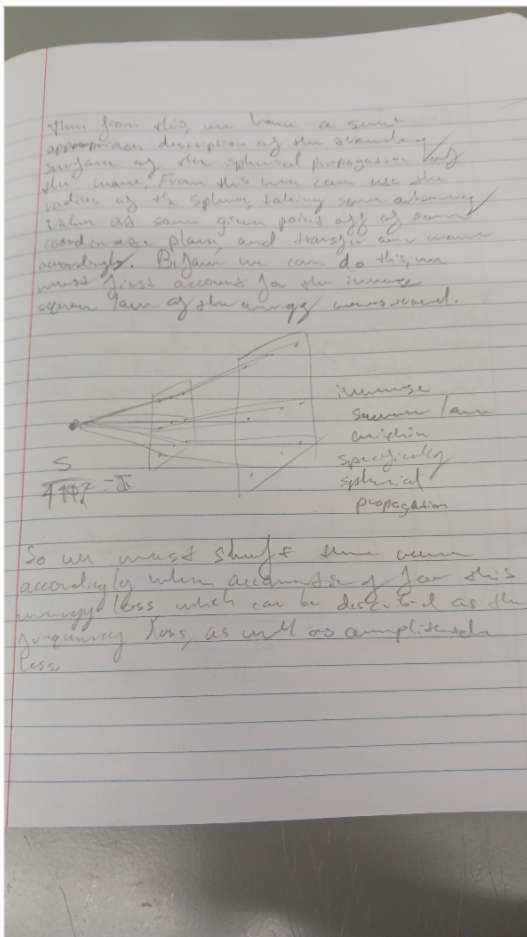 then from this, we have a some
description of the
surface of the spherical propagation of
the wave. From this we can use the
radius of the sphere, taking some arbitrary
value at some given point off of some
coordinate plane, and transfer our wave
accordingly. Before we can do this, we
must first account for the inverse
square law of the energy
inverse
square law
within
specifically
spherical
propagation
S
= I
So we must shift the wave
accordingly when accounting for this
energy loss which can be described as the
frequency loss, as well as amplitude
loss.